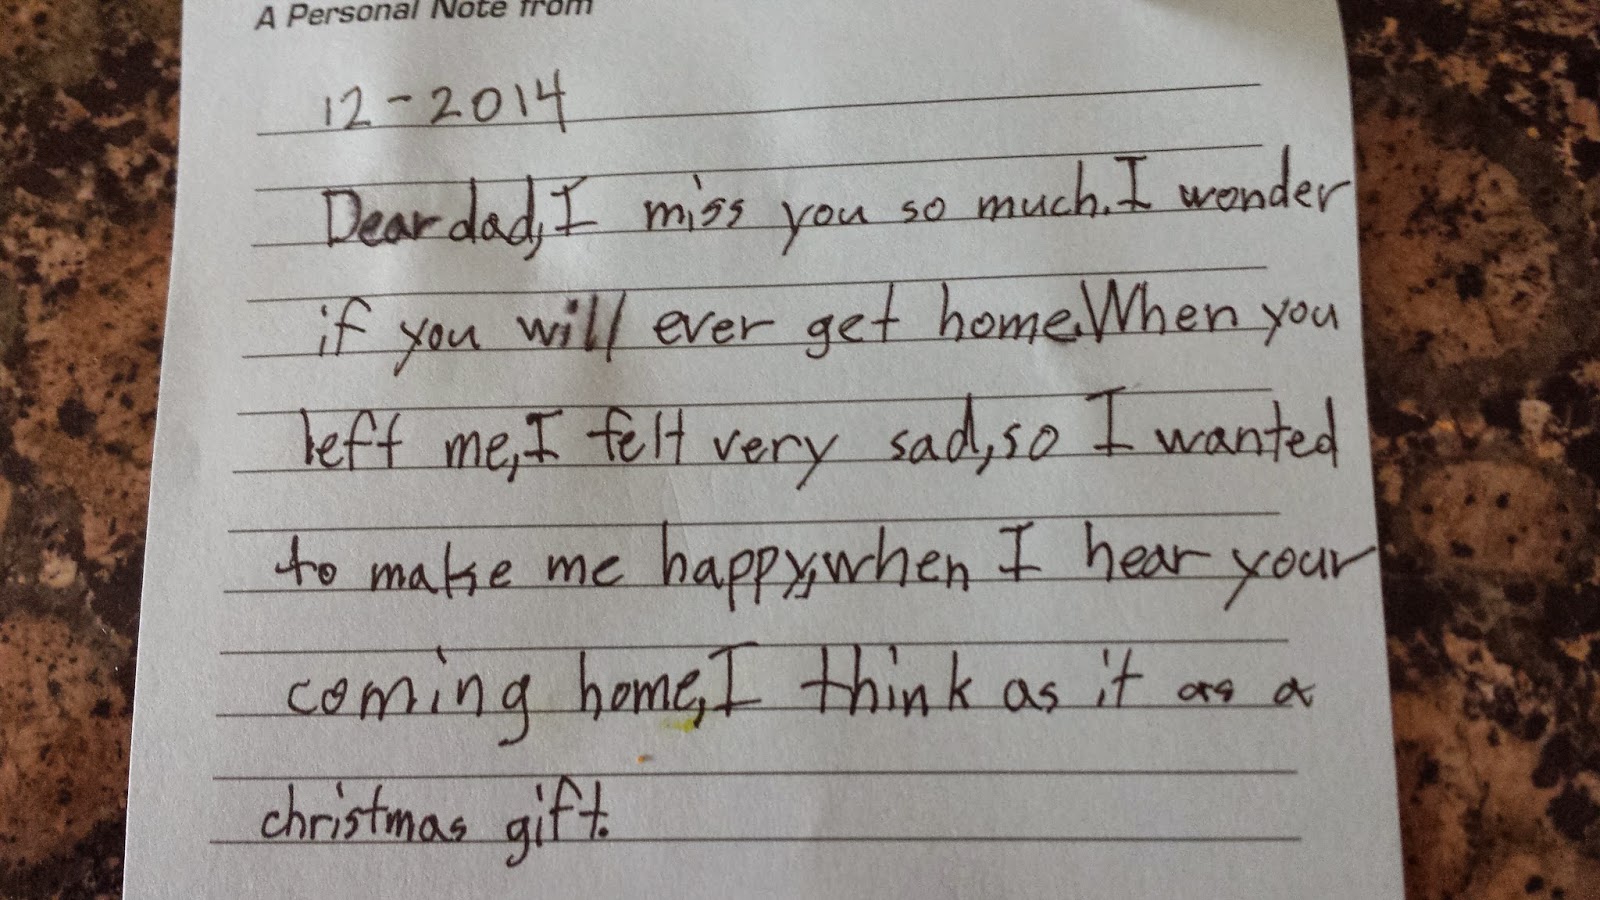 A Personal Note from
12-2014
Dear dad, I miss you so much. I wonder
if you will ever get home. When you
left me, I felt very sad, so I wanted
to make me happy, when I hear your
coming home, I think as it as a
christmas gift.